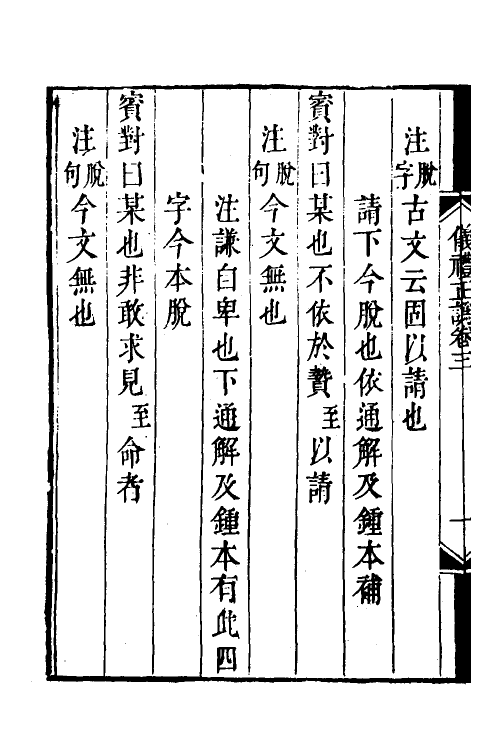 儀禮正譌卷三
一
注脫字古文云固以請也
請下今脫也依通解及鍾本補
賓對曰某也不依於贄至以請
注脫句今文無也
注謙自卑也下通解及鍾本有此四
字今本脫
賓對曰某也非敢求見至命者
注脫句今文無也